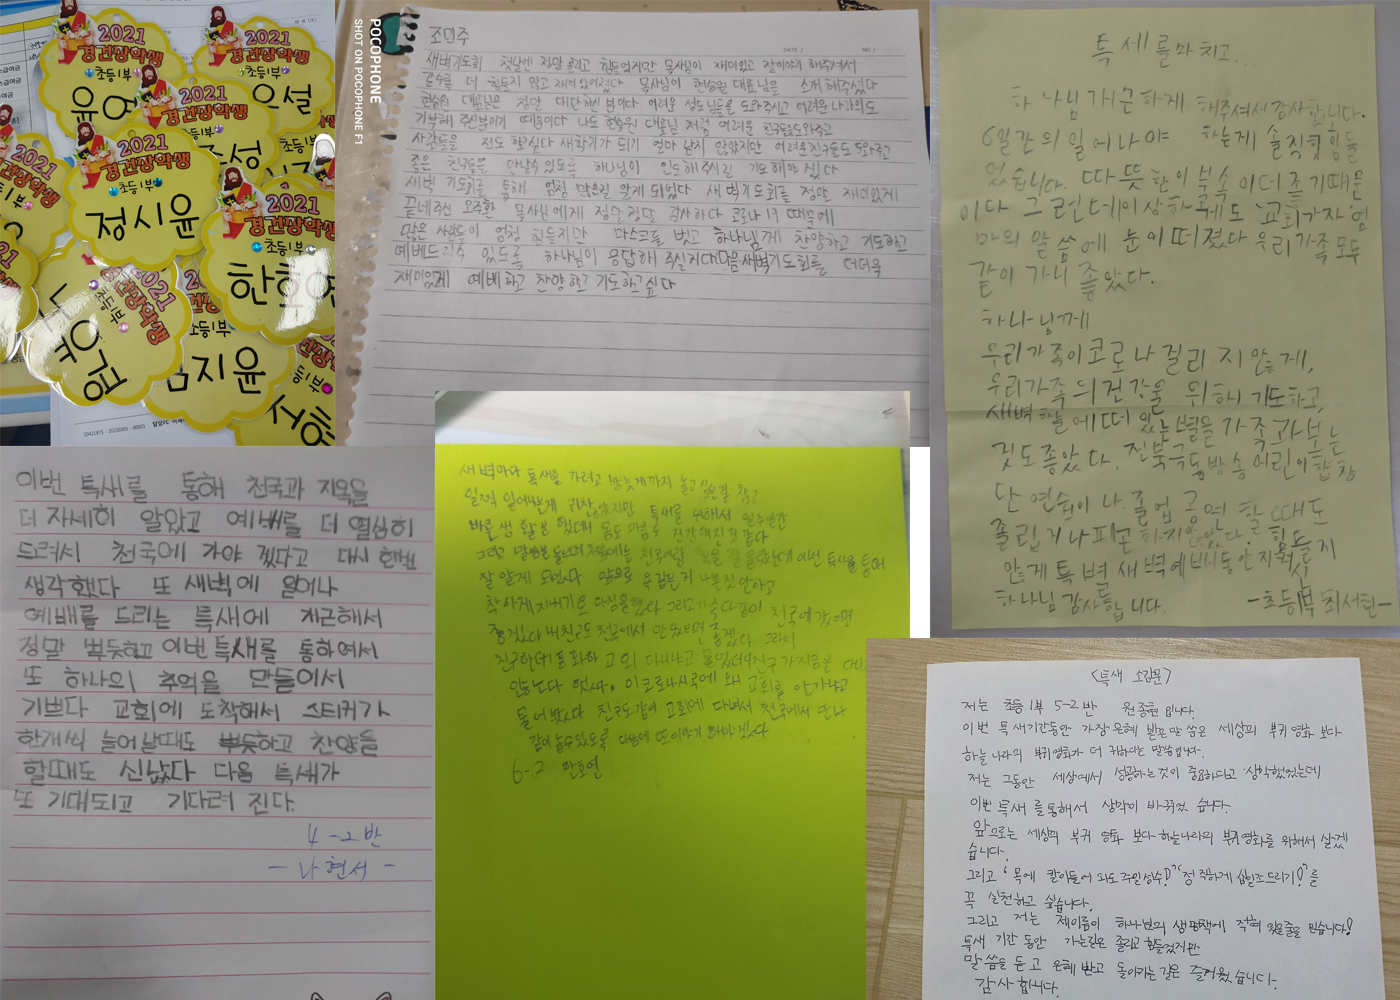 2021
경건장학생
초등1부
2021
경건장학생
초등1부
정시윤
2021
경건장학생
초등1부
2021
경건장학생
초등1부
2021
경건장학생
초등1부
지윤
SHOT ON POCOPHONE F1
POCOPHONE
조민주
DATE /
NO. /
새벽기도회 첫날엔 정말 졸리고 힘들었지만 목사님이 재미있고 잘이야기 해주셔서
갈수록 더 힘들지 않고 재미있어졌다 목사님이 현승원 대표님을 소개 해주셨다
현승원 대표님은 정말 대단하신 분이다 어려운 성도님들을 도와주시고 어려운 나라에도
기부해 주신분이기 때문이다 나도 현승원 대표님 처럼 어려운 친구들을 도와주고
사람들을 전도 하고싶다 새학기가 되기 얼마 남지 않았지만 어려운친구들도 도와주고
좋은 친구들을 만날수 있도록 하나님이 인도해주시길 기도해야 겠다
새벽 기도회를 통해 엄청 많은걸 알게 되었다 새벽기도회를 정말 재미있게
끝내주신 오주환 목사님에게 정말 정말 감사하다 코로나 19 때문에
많은 사람들이 엄청 힘들지만 마스크를 벗고 하나님께 찬양하고 기도하고
예배드릴수 있도록 하나님이 응답해 주실거다 다음새벽기도회를 더더욱
재미있게 예배하고 찬양하고 기도하고싶다
특세를마치고...
하나님 개근하게 해주셔서감사합니다.
6일간의 일어나야 하는게 솔직히힘들
었습니다. 따뜻한이불속이더좋기때문
이다 그런데이상하게도 '교회가자' 엄
마의 말씀에 눈이떠졌다 우리가족모두
같이 가니 좋았다.
하나님께
우리가족이코로나걸리지않게,
우리가족의건강을 위해 기도하고,
새벽하늘에떠있는별을가족과보는
것도좋았다. 전북극동방송어린이합창
단 연습이나. 졸업 공연 할때도
졸립거나피곤하지않았다. 힘들지
않게 특별새벽예배시동안지켜주신
하나님 감사합니다.
-초등1부 최서린-
이번 특새를 통해 천국과 지옥을
더 자세히 알았고 예배를 더 열심히
드려서 천국에 가야 겠다고 다시 한번
생각했다 또 새벽에 일어나
예배를 드리는 특새에 개근해서
정말 뿌듯하고 이번특새를 통하여서
또 하나의 추억을 만들어서
기쁘다 교회에 도착해서 스티커가
한개씩 늘어날때도 뿌듯하고 찬양을
할때도 신났다 다음 특새가
또 기대되고 기다려 진다.
4-2반
- 나현서 -
새벽마다 특새를 가려고 밤늦게까지 놀고싶은걸 참고
일찍 일어나는게 귀찮았지만 특새를 위해서 일주일간
바른생활을 했더니 몸도 마음도 건강해진거 같다
그리고 말씀을들으며 처음에는 천국이랑 잘 몰랐는데 이번 특새를 통해
잘 알게 되었다 앞으로 나쁜짓 안하고
착하게 지내기로 다짐을했다 그리고 가족다같이 천국에갔으면
좋겠다 내친구도 천국에서 만났으면 좋겠다 그래서
친구한테 전화하 교회 다니냐고 물었더니 친구가지금은
안다닌다 했다. 이코로나시국에 왜 교회를 안가냐고
물어봤다 친구도같이 교회에 다녀서 천국에서 만나
같이 놀수있도록 다음에 또이야기 해봐야겠다
6-2 한호연
<특새 소감문>
저는 초등1부 5-2반 원종현 입니다.
이번 특새기간동안 가장 은혜 받은 말씀은 세상의 부귀영화 보다
하늘나라의 부귀영화가 더 귀하다는 말씀입니다.
저는 그동안 세상에서 성공하는것이 중요하다고 생각했었는데
이번 특새를통해서 생각이 바뀌었 습니다.
앞으로는 세상의 부귀 영화 보다 하늘나라의 부귀영화를 위해서 살겠
습니다.
그리고 '목에 칼이들어 와도 주일성수!' '정직하게 십일조드리기!'를
꼭 실천하고 싶습니다.
그리고 저는 제이름이 하나님의 생명책에 적혀 있을줄을 믿습니다!
특새 기간 동안 가는길은 졸리고 힘들었지만
말씀을 듣고 은혜 받고 돌아가는 길은 즐거웠습니다.
감사합니다.